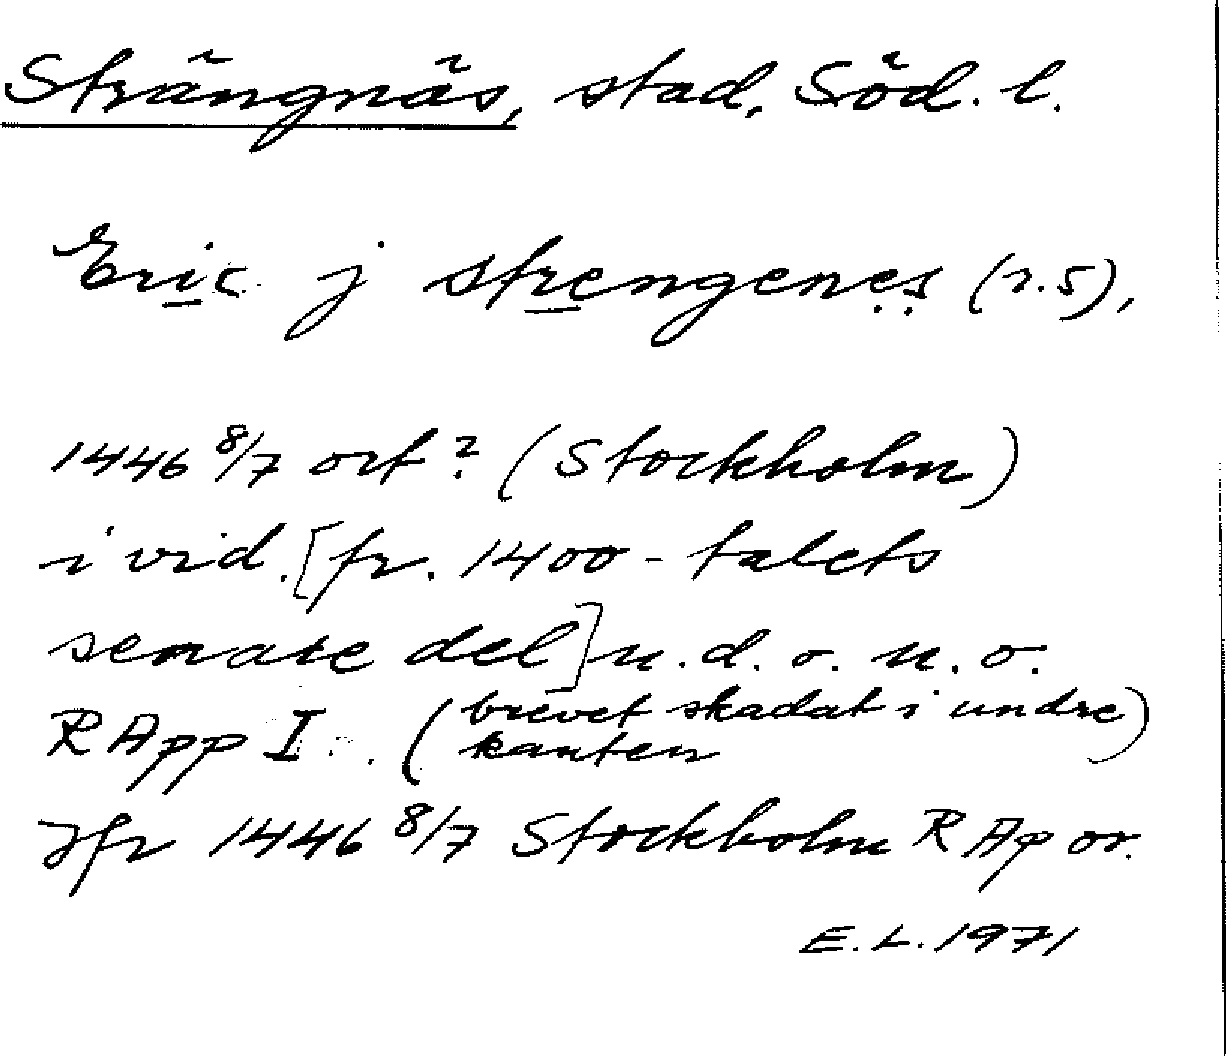 Strängnäs, stad, Söd. l.
Eric j strengenes (r.5),
1446 8/7 ort? (Stockholm)
i vid. [fr. 1400-talets
senare del] u.d.o.u.o.
RApp I. (brevet skadat i undre kanten)
Jfr 1446 8/7 Stockholm RAp or.
E.L. 1971